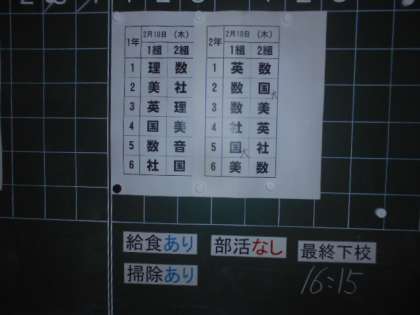 1年 2月18日 (木)
1組 2組
1 理 数
2 美 社
3 英 理
4 国 美
5 数 音
6 社 国
2年 2月18日 (木)
1組 2組
1 英 数
2 数 国
3 数 美
4 社 英
5 国 社
6 美 数
給食あり 部活なし 最終下校
掃除あり 16:15